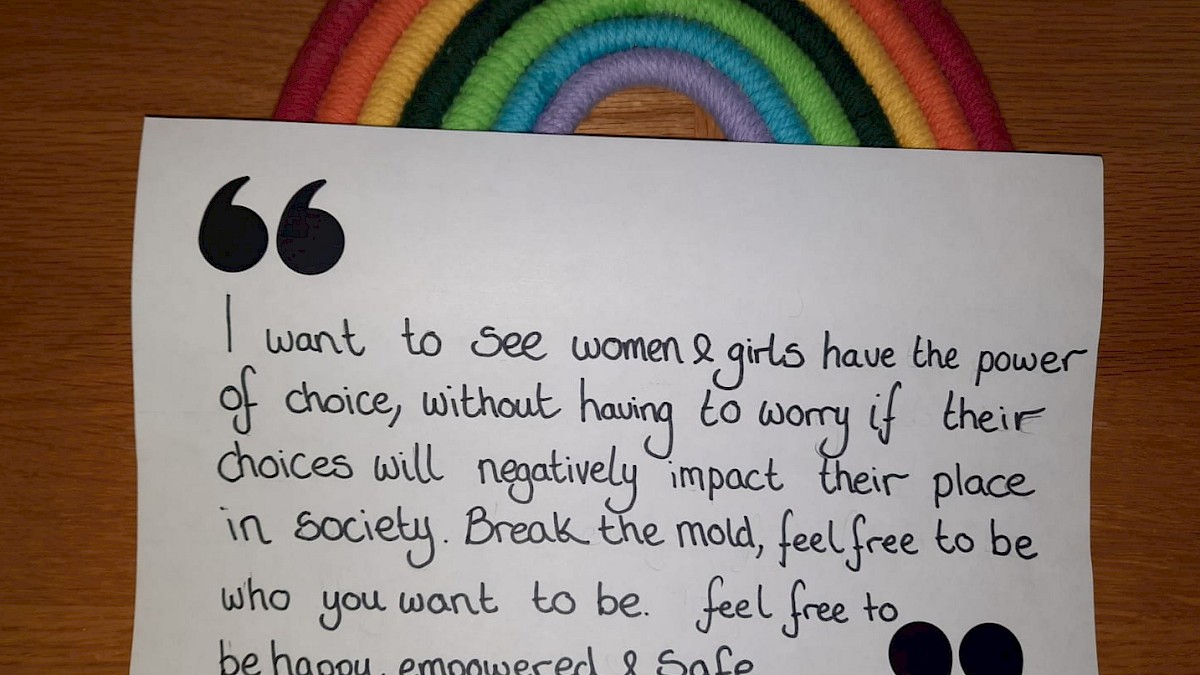 I want to see women & girls have the power
of choice, without having to worry if their
choices will negatively impact their place
in society. Break the mold, feel free to be
who you want to be. feel free to
be happy, empowered & safe